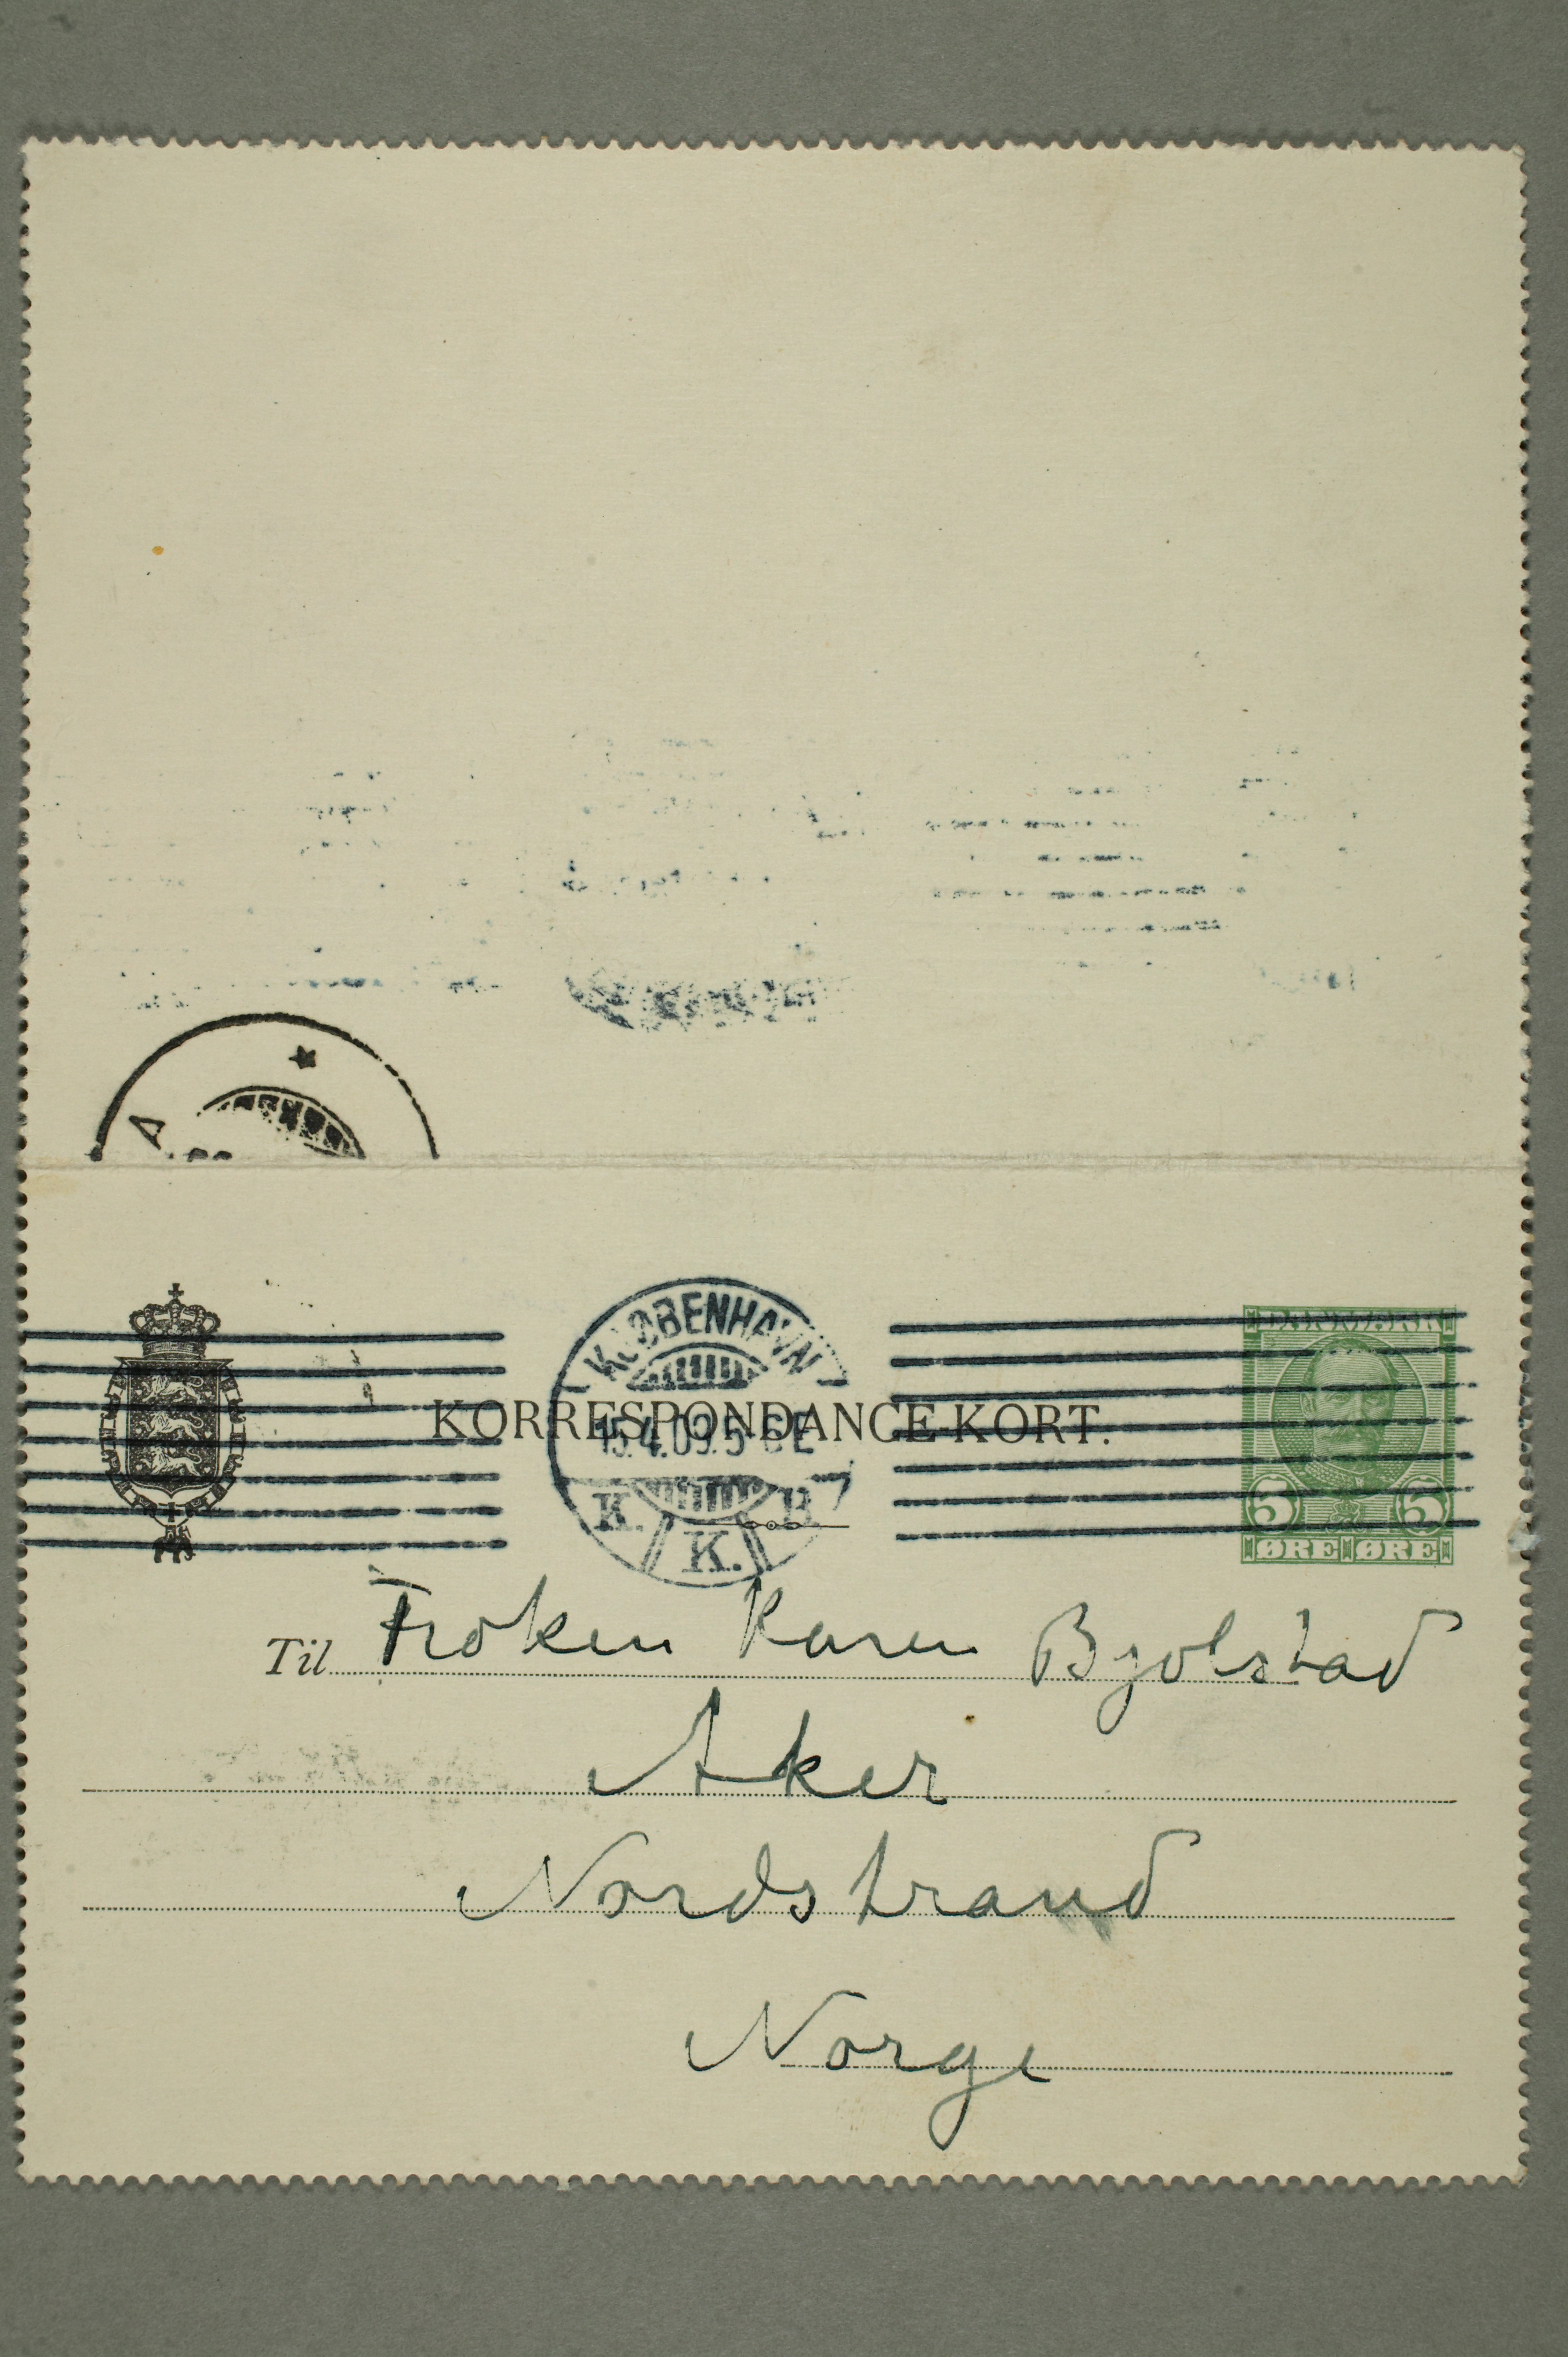 A
DANMARK
KØBENHAVN
KORRESPONDANCE-KORT.
15.4.09.5
K. K. B.
5 5
ØRE ØRE
Til Frøken Karen Bjølstad
Aker
Nordstrand
Norge